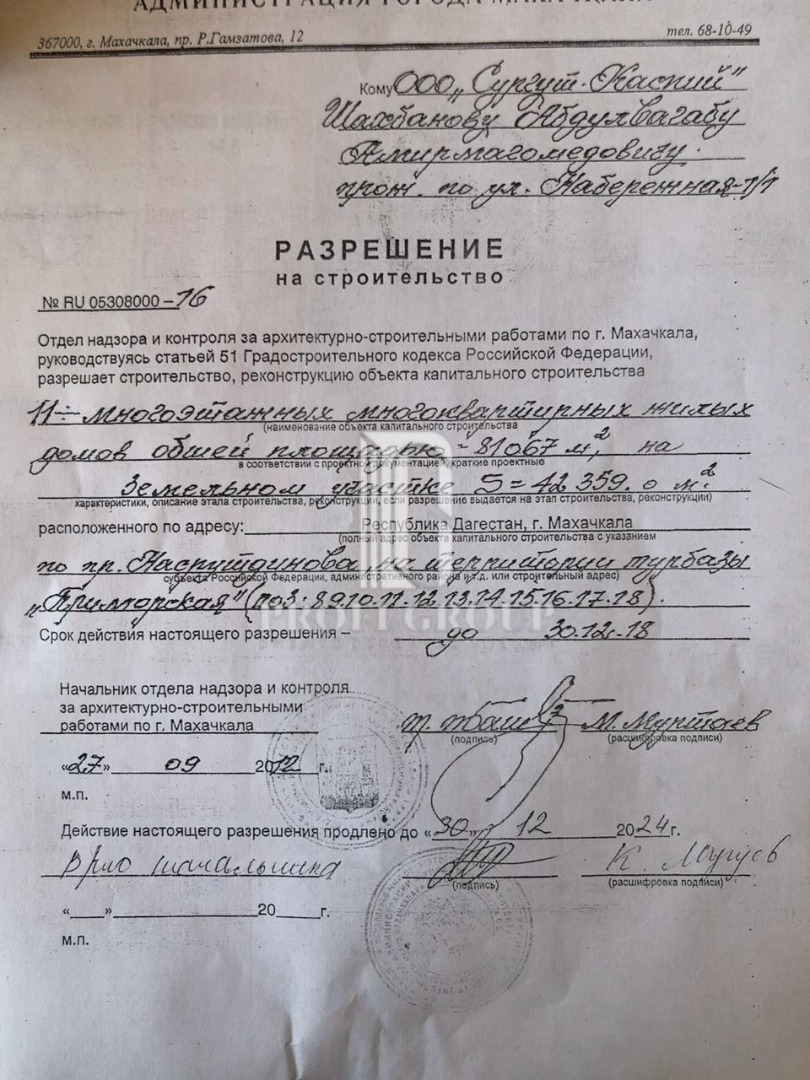 АДМИНИСТРАЦИЯ ГОРОДА МАХАЧКАЛА
367000, г. Махачкала, пр. Р.Гамзатова, 12 тел. 68-10-49
Кому ООО „Сургут-Каспий"
Шахбанову Абдулвагабу
Амирмагомедовичу.
прож. по ул. Набережная-1/1
РАЗРЕШЕНИЕ
на строительство
№ RU 05308000 -16
Отдел надзора и контроля за архитектурно-строительными работами по г. Махачкала,
руководствуясь статьей 51 Градостроительного кодекса Российской Федерации,
разрешает строительство, реконструкцию объекта капитального строительства
11 - многоэтажных многоквартирных жилых
(наименование объекта капитального строительства
домов общей площадью = 81067 м², на
в соответствии с проектной документацией, краткие проектные
земельном участке S = 42 359.0 м²
характеристики, описание этапа строительства, реконструкции, если разрешение выдается на этап строительства, реконструкции)
расположенного по адресу: Республика Дагестан, г. Махачкала
(полный адрес объекта капитального строительства с указанием
по пр. Насрутдинова, на территории турбазы
субъекта Российской Федерации, административного района и т.д. или строительный адрес)
„Приморская" (поз: 8.9.10.11.12.13.14.15.16.17.18).
PROFI GROUP
Срок действия настоящего разрешения – до 30.12.18
Начальник отдела надзора и контроля
за архитектурно-строительными
работами по г. Махачкала М. Муртаев
(подпись) (расшифровка подписи)
«27» 09 2012 г.
м.п.
Действие настоящего разрешения продлено до «30» 12 2024 г.
Врио начальника К. Магуев
(подпись) (расшифровка подписи)
«___»______20___г.
м.п.